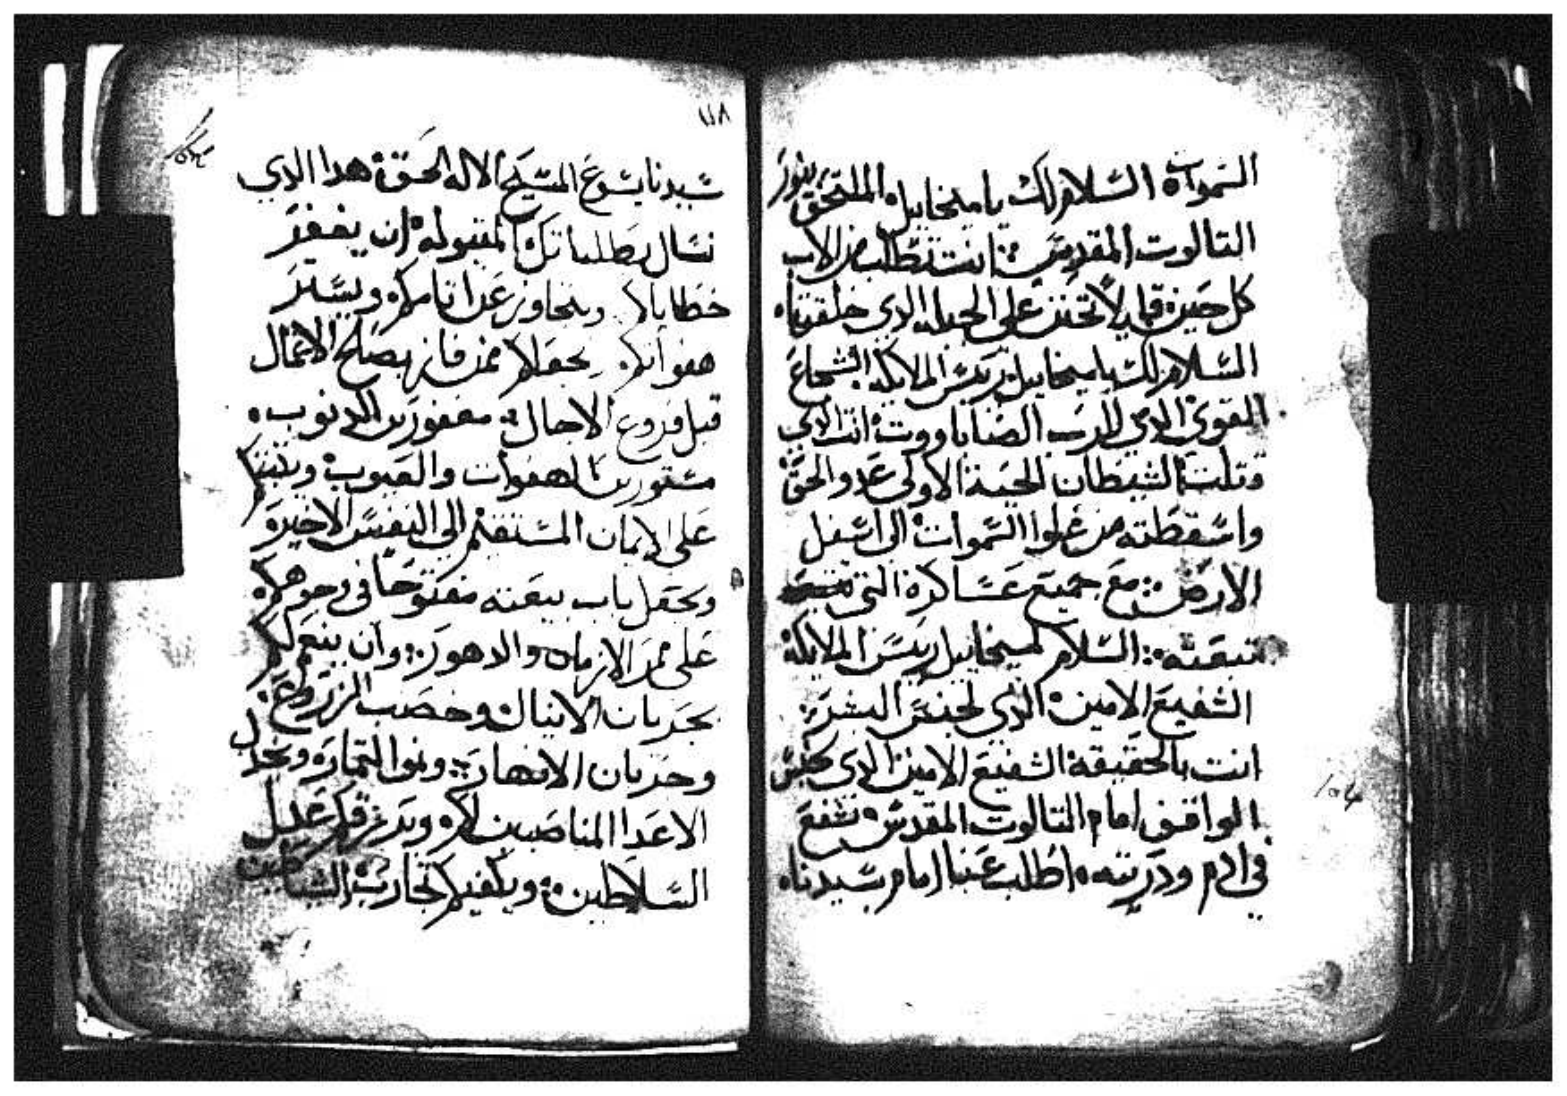 السموات السلام لك يا ميخاييل الملتحف بنور
التالوت المقدس انت تطلب من الاب
كل حين قايلا تحنن على الجبله الدي خلقتها
السلام لك يا ميخاييل رييس الملايكه الشجاع
القوي الدي للرب الصاباووت انت الدي
قتلت الشيطان الحية الاولى عدو الحق
واسقطته من علوا السموات الى اسفل
الارض مع جميع عساكره التي
تبعته السلام لميخاييل رييس الملايكة
الشفيع الامين الدي لجنس البشر
انت بالحقيقة الشفيع الامين الدي
الواقف امام التالوت المقدس تشفع
في ادم ودريته اطلب عنا امام سيدنا
١١٨
سيدنا يسوع المسيح الاله الحق هدا الدي
نسال بطلباتك المقبوله ان يغفر
خطاياكم ويتجاوز عن اتامكم ويستر
هفواتكم يجعلكم ممن فاز بصلح الاعمال
قبل فروع الاجال مغفورين الدنوب
مستورين الهفوات والعيوب ويتبتكم
على الايمان المستقيم الى النفس الاخيره
ويجعل باب بيعته مفتوحا في وجوهكم
على ممر الازمان والدهور وان ينعم لكم
بجريان الانيال وخصب الزروع
وجريان الانهار ونوا التمار ويخدل
الاعدا المناصبين لكم ويرزقكم عدل
السلاطين ويكفيكم تجارب الشياطين